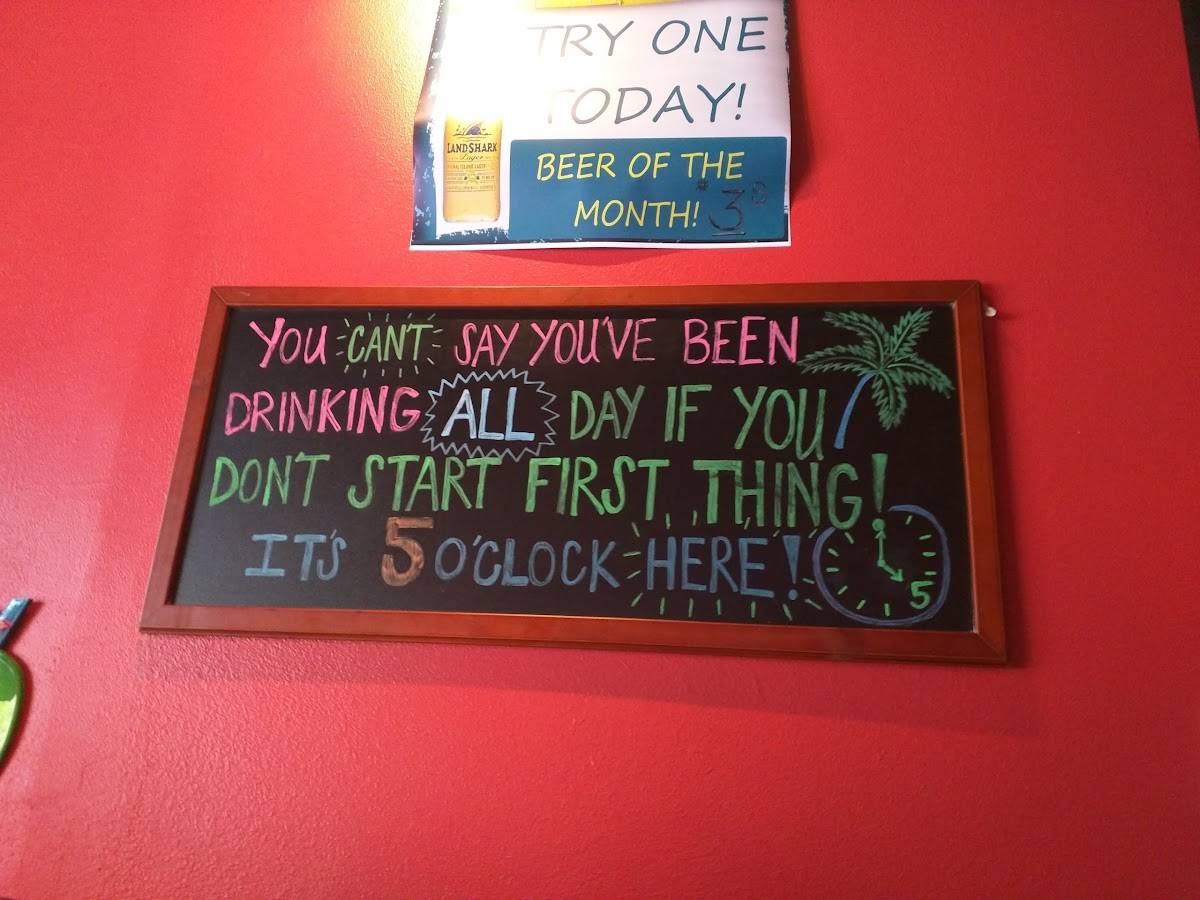 TRY ONE
TODAY!
LANDSHARK
Lager
BEER OF THE
MONTH! $3
YOU CAN'T SAY YOU'VE BEEN
DRINKING ALL DAY IF YOU
DON'T START FIRST THING!
IT'S 5 O'CLOCK HERE!
5